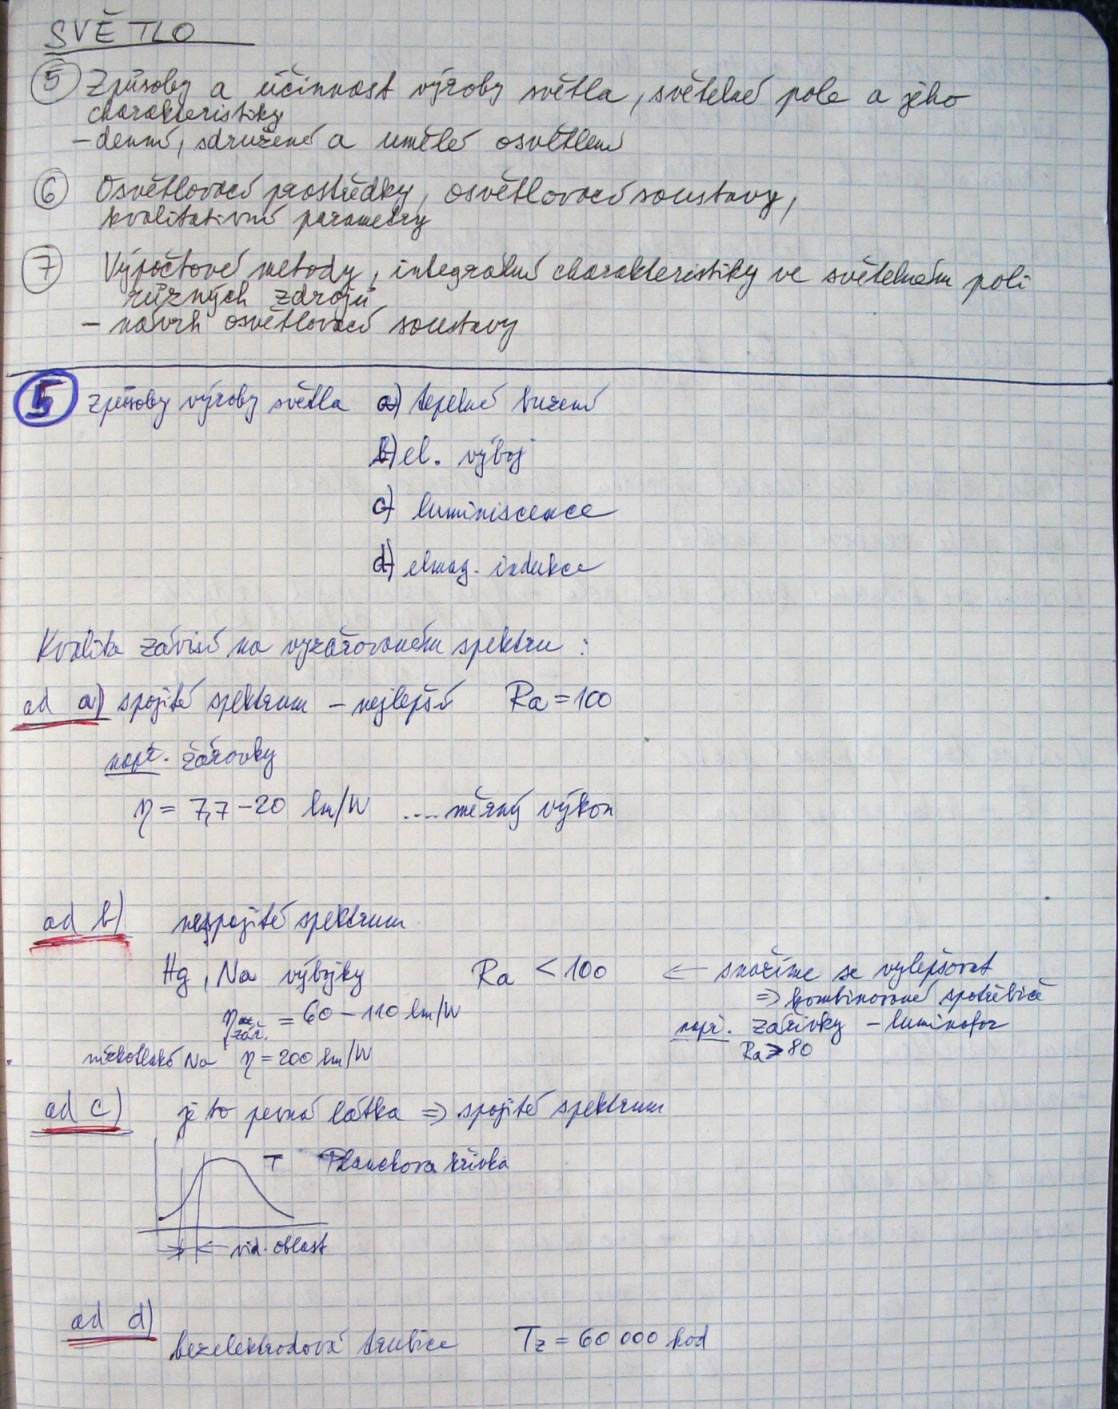 SVĚTLO
5 Způsoby a účinnost výroby světla, světelné pole a jeho
charakteristiky
- denní, sdružené a umělé osvětlení
6 Osvětlovací prostředky, osvětlovací soustavy,
kvalitativní parametry
7 Výpočtové metody, integrální charakteristiky ve světelném poli
různých zdrojů
- návrh osvětlovací soustavy
5 způsoby výroby světla a) tepelné buzení
b) el. výboj
c) luminiscence
d) elmag. indukce
Kvalita závisí na vyzařovaném spektru :
ad a) spojité spektrum - nejlepší Ra = 100
např. žárovky
η = 7,7 - 20 lm/W .... měrný výkon
ad b) nespojité spektrum
Hg, Na výbojky Ra < 100 ← snažíme se vylepšovat
⇒ kombinované spotřebiče
η zář. = 60 - 110 lm/W např. zářivky - luminofor
Ra > 80
nízkotlaké Na η = 200 lm/W
ad c) je to pevná látka ⇒ spojité spektrum
T Planckova křivka
vid. oblast
ad d)
bezelektrodová trubice Tz = 60 000 hod